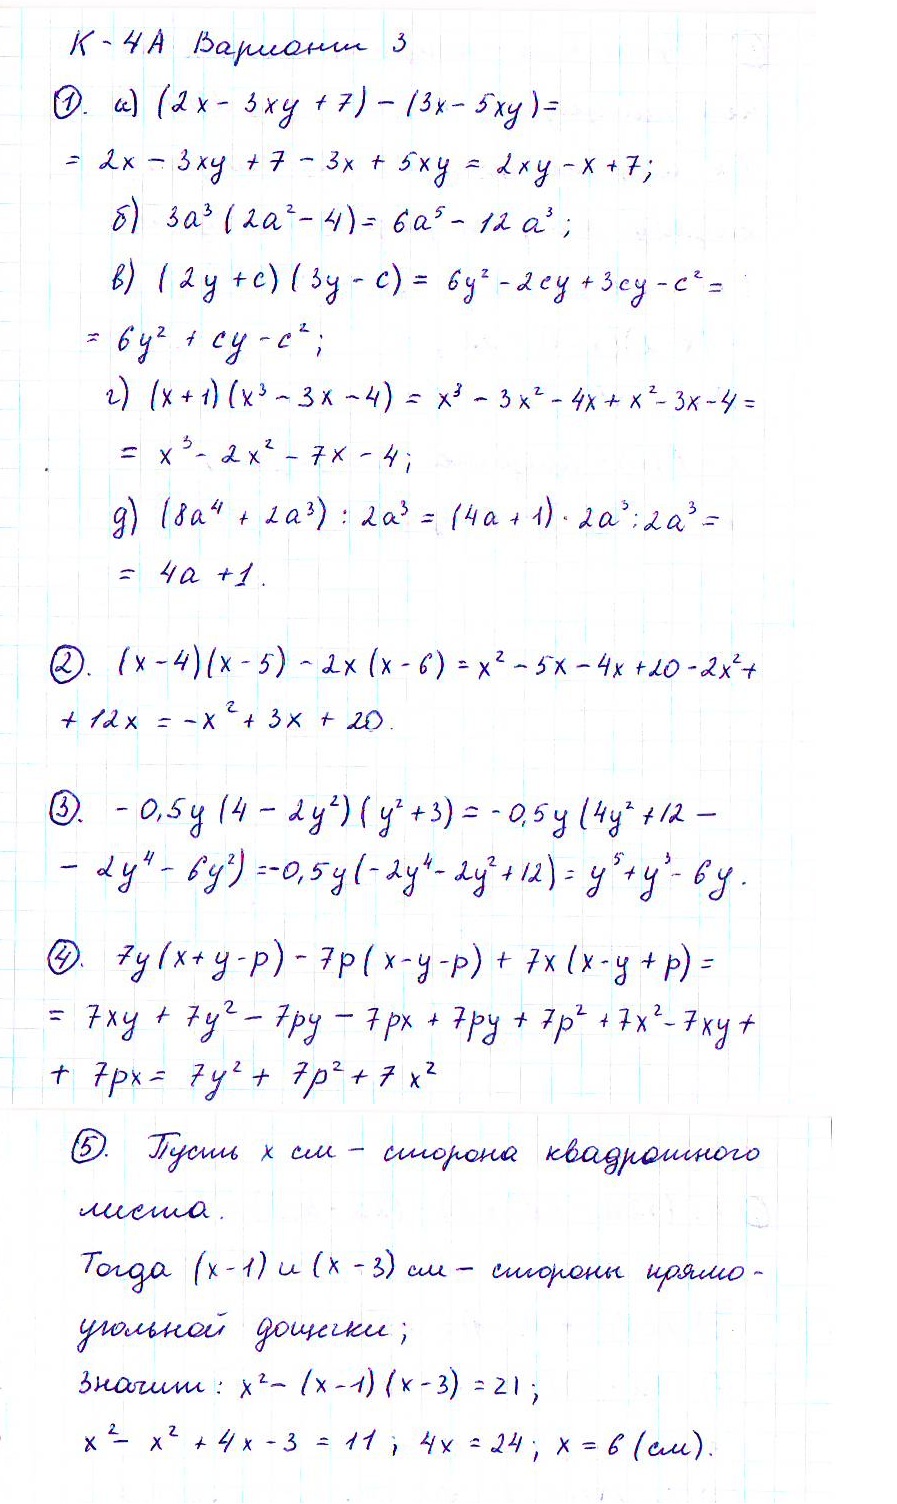 К - 4А Вариант 3
①. а) (2x - 3xy + 7) - (3x - 5xy) =
= 2x - 3xy + 7 - 3x + 5xy = 2xy - x + 7;
б) 3a³ (2a² - 4) = 6a⁵ - 12a³;
в) (2y + c)(3y - c) = 6y² - 2cy + 3cy - c² =
= 6y² + cy - c²;
г) (x + 1)(x³ - 3x - 4) = x³ - 3x² - 4x + x² - 3x - 4 =
= x³ - 2x² - 7x - 4;
д) (8a⁴ + 2a³) : 2a³ = (4a + 1) · 2a³ : 2a³ =
= 4a + 1.
②. (x - 4)(x - 5) - 2x (x - 6) = x² - 5x - 4x + 20 - 2x² +
+ 12x = -x² + 3x + 20.
③. - 0,5y (4 - 2y²)(y² + 3) = - 0,5y (4y² + 12 -
- 2y⁴ - 6y²) = -0,5y (-2y⁴ - 2y² + 12) = y⁵ + y³ - 6y.
④. 7y (x + y - p) - 7p (x - y - p) + 7x (x - y + p) =
= 7xy + 7y² - 7py - 7px + 7py + 7p² + 7x² - 7xy +
+ 7px = 7y² + 7p² + 7x²
⑤. Пусть x см - сторона квадратного
листа.
Тогда (x - 1) и (x - 3) см - стороны прямо-
угольной дощечки;
Значит: x² - (x - 1)(x - 3) = 21;
x² - x² + 4x - 3 = 11; 4x = 24; x = 6 (см).